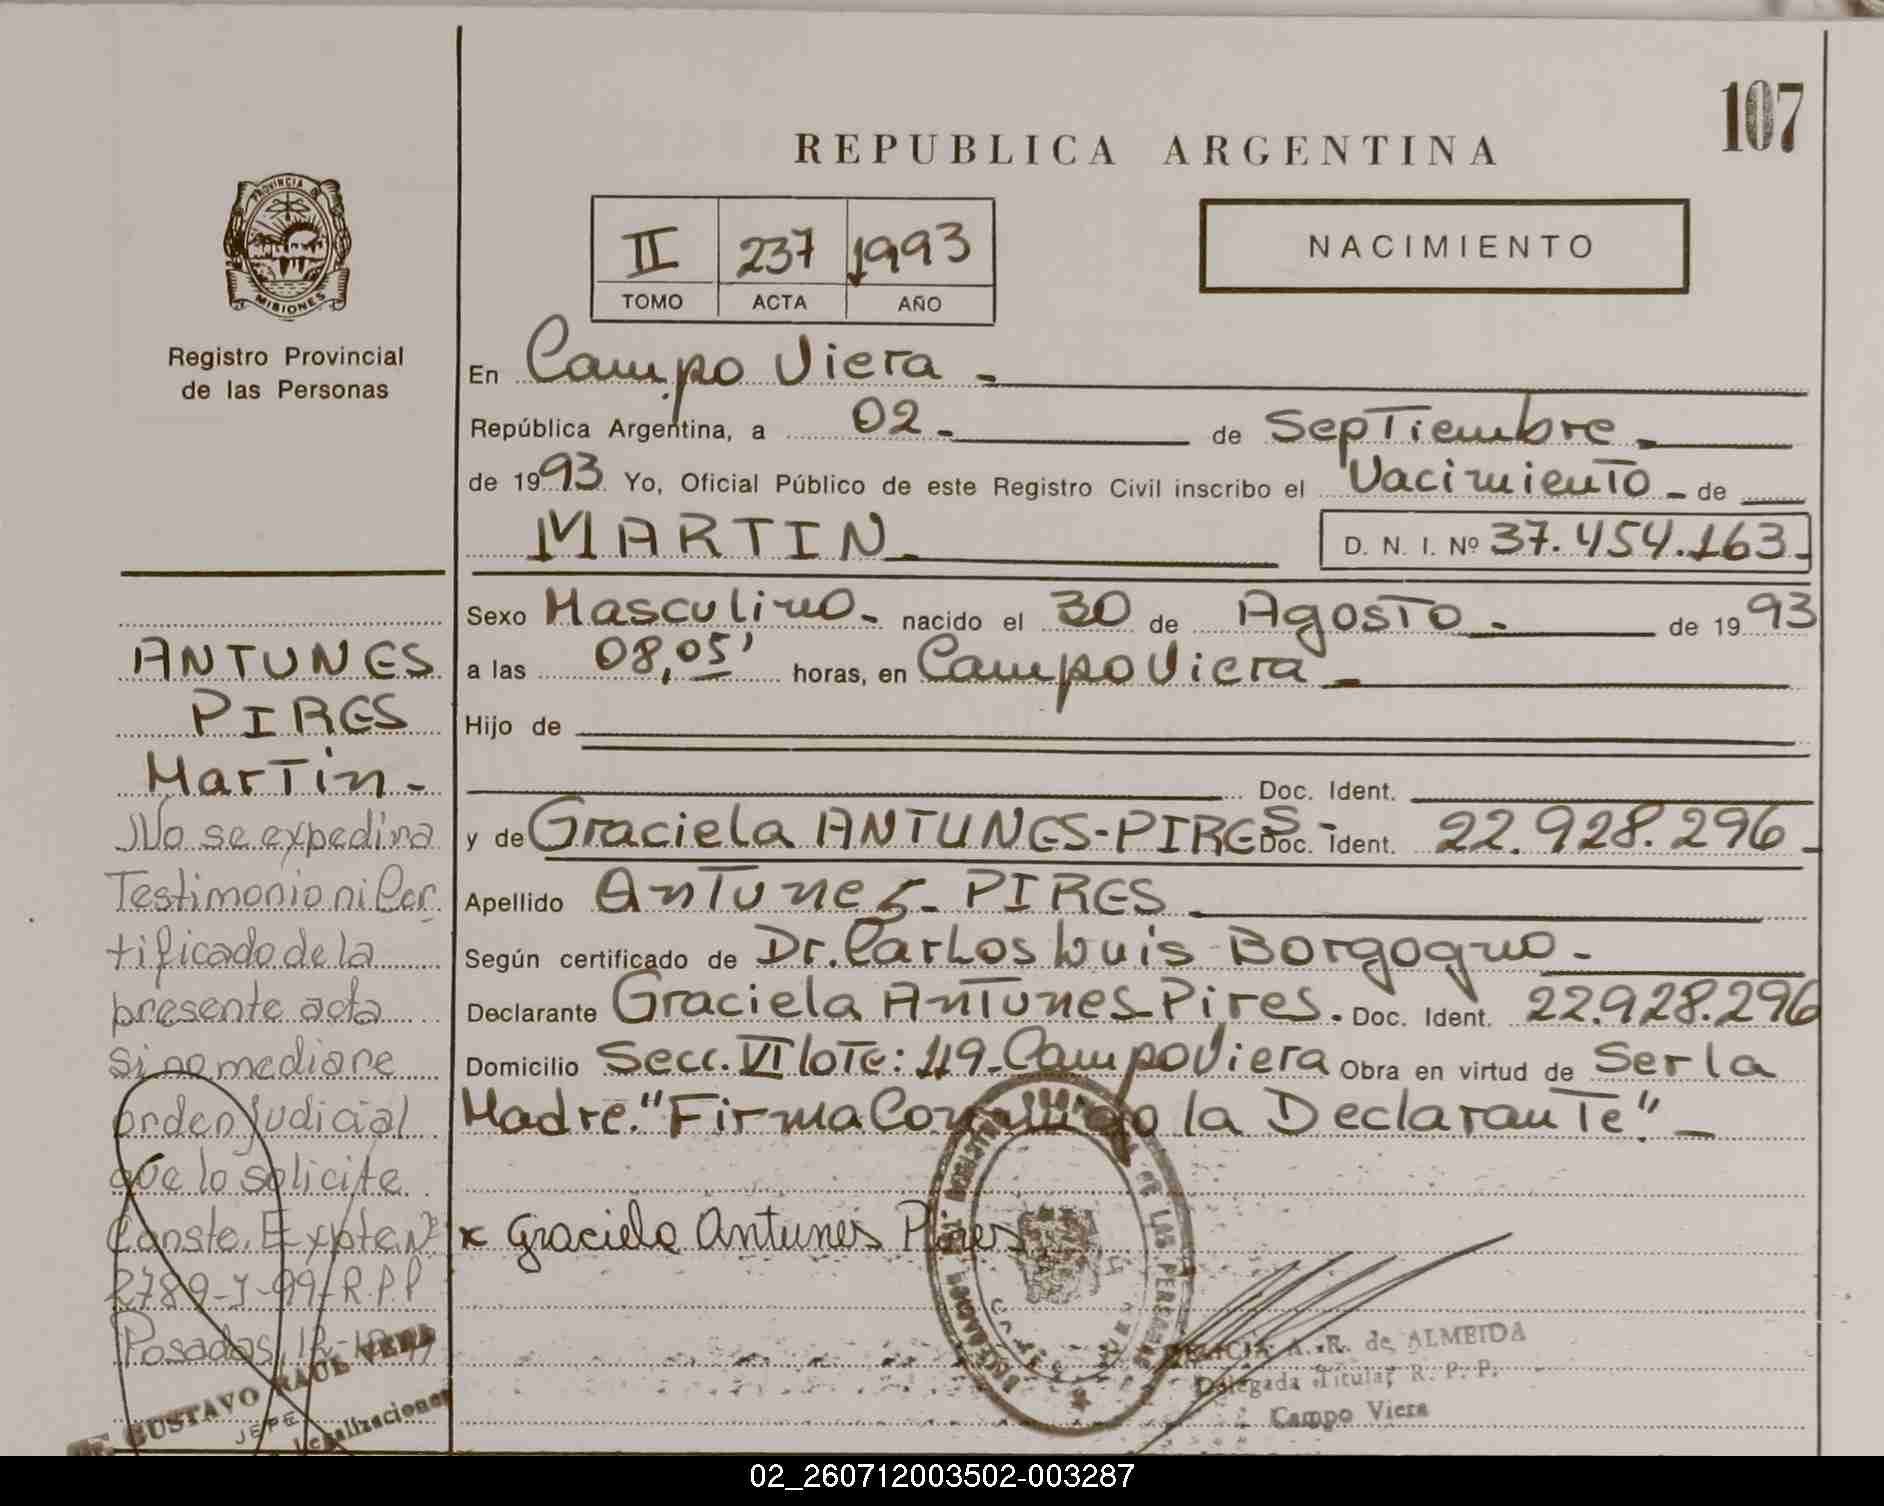 107
REPUBLICA ARGENTINA
PROVINCIA DE
MISIONES
Registro Provincial
de las Personas
II 237 1993
TOMO ACTA AÑO
NACIMIENTO
En Campo Viera -
República Argentina, a 02 - de Septiembre -
de 1993 Yo, Oficial Público de este Registro Civil inscribo el Nacimiento - de
MARTIN - D. N. I. Nº 37.454.163.-
Sexo Masculino - nacido el 30 de Agosto - de 1993
a las 08,05' horas, en Campo Viera -
Hijo de
Doc. Ident.
y de Graciela ANTUNES-PIRES - Doc. Ident. 22.928.296 -
Apellido Antunes - PIRES
Según certificado de Dr. Carlos Luis Borgogno -
Declarante Graciela Antunes-Pires. Doc. Ident. 22.928.296
Domicilio Secc. VI lote: 119 - Campo Viera Obra en virtud de Ser la
Madre. "Firma Conmigo la Declarante" -
x Graciela Antunes Pires
ANTUNES
PIRES
Martin -
No se expedira
Testimonio ni Cer
tificado de la
presente acta
si no mediare
orden Judicial
que lo solicite
Conste. Expte Nº
2789-J-99-R.P.P
Posadas, 12-
GUSTAVO RAUL VERA
JEFE
Legalizaciones
DE LAS PERSONAS
A. R. de ALMEIDA
Delegada Titular R. P. P.
Campo Viera
02_260712003502-003287